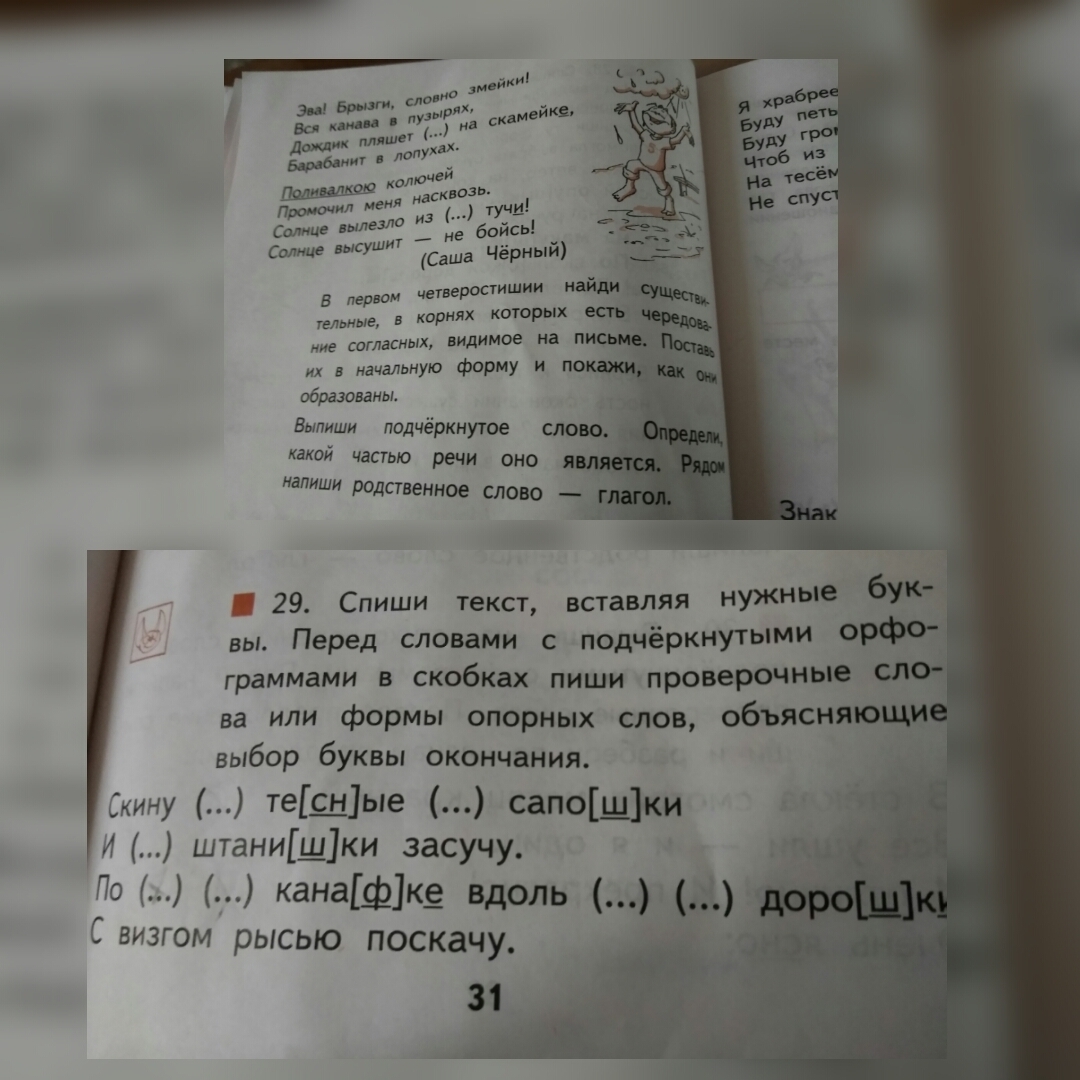 Эва! Брызги, словно змейки!
Вся канава в пузырях,
Дождик пляшет (...) на скамейке,
Барабанит в лопухах.
Поливалкою колючей
Промочил меня насквозь.
Солнце вылезло из (...) тучи!
Солнце высушит — не бойсь!
(Саша Чёрный)
В первом четверостишии найди существи-
тельные, в корнях которых есть чередова-
ние согласных, видимое на письме. Поставь
их в начальную форму и покажи, как они
образованы.
Выпиши подчёркнутое слово. Определи,
какой частью речи оно является. Рядом
напиши родственное слово — глагол.
Я храбрее
Буду петь
Буду гро
Чтоб из
На тесём
Не спуст
Знак
29. Спиши текст, вставляя нужные бук-
вы. Перед словами с подчёркнутыми орфо-
граммами в скобках пиши проверочные сло-
ва или формы опорных слов, объясняющие
выбор буквы окончания.
Скину (...) те[сн]ые (...) сапо[ш]ки
И (...) штани[ш]ки засучу.
По (...) (...) кана[ф]ке вдоль (...) (...) доро[ш]ки
С визгом рысью поскачу.
31